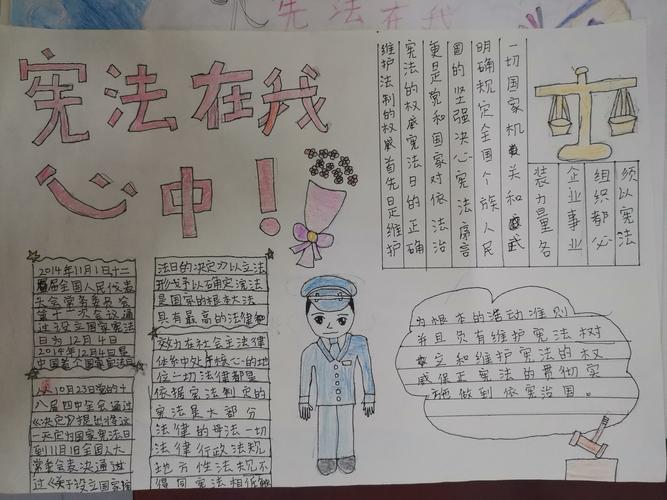 宪法在我
宪法在我
心中！
2014年11月1日十二
届全国人民代表
大会常务委员会
第十一次会议通
过设立国家宪法
日为12月4日
2014年12月4日是
中国首个国家宪法日
10月23日党的十
八届四中全会通过
《决定》提出将这
一天定为国家宪法日
到11月1日全国人大
常委会表决通过
过《关于设立国家宪
法日的决定力以立法
形式予以确定宪法
是国家的根本大法
具有最高的法律
效力在社会主法律
体系中处于核心的地
位一切法律都是
依据宪法制定的
宪法是大部分
法律的母法一切
法律行政法规
地方性法规不
得同宪法相低触
维护法制的权威首先是维护
宪法的权威宪法日的正确
更是党和国家对依法治
国的坚强决心宪法序言
明确规定全国个族人民
一切国家机关和武
装力量各
企业事业
组织都必
须以宪法
为根本的活动准则
并且负有维护宪法树
立和维护宪法的权
威保正宪法的贯彻实
施做到依宪治国。